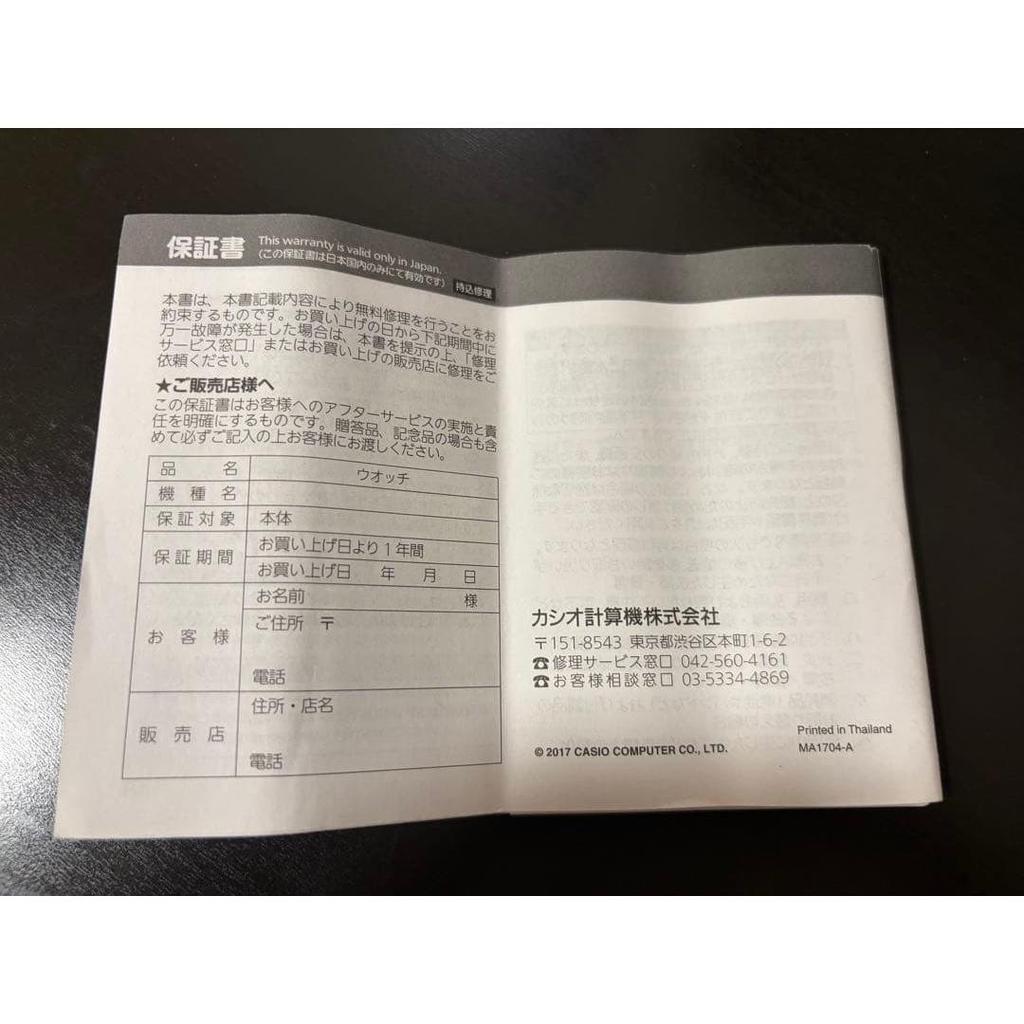 保証書
This warranty is valid only in Japan.
(この保証書は日本国内のみにて有効です)
持込修理
本書は、本書記載内容により無料修理を行うことをお
約束するものです。お買い上げの日から下記期間中に
万一故障が発生した場合は、本書を提示の上、「修理
サービス窓口」またはお買い上げの販売店に修理をご
依頼ください。
★ご販売店様へ
この保証書はお客様へのアフターサービスの実施と責
任を明確にするものです。贈答品、記念品の場合も含
めて必ずご記入の上お客様にお渡しください。
品名 ウオッチ
機種名
保証対象 本体
保証期間 お買い上げ日より1年間
お買い上げ日 年 月 日
お客様 お名前 様
ご住所 〒
電話
販売店 住所・店名
電話
カシオ計算機株式会社
〒151-8543 東京都渋谷区本町1-6-2
☎修理サービス窓口 042-560-4161
☎お客様相談窓口 03-5334-4869
Printed in Thailand
© 2017 CASIO COMPUTER CO., LTD. MA1704-A